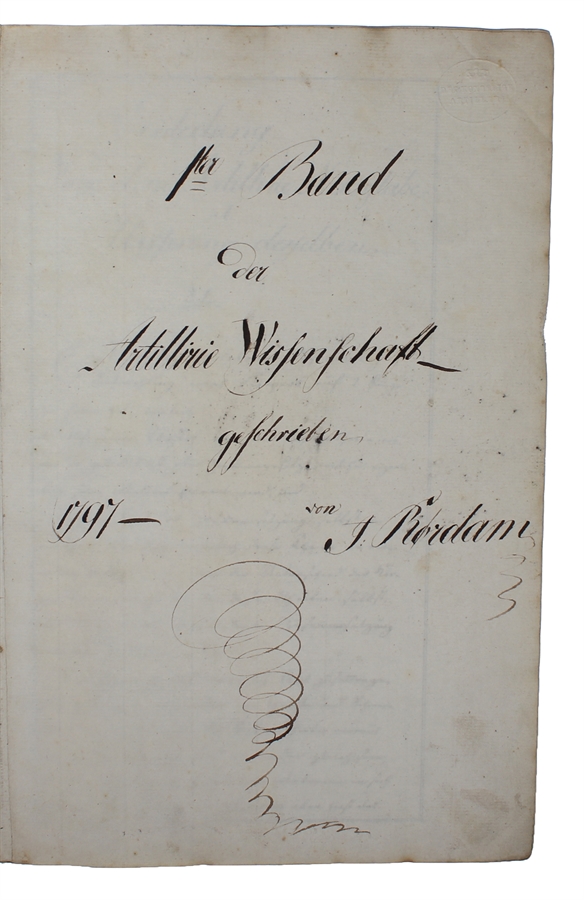 1ter Band
der
Artillirie Wissenschaft
geschrieben
1797 — von J. Rørdam